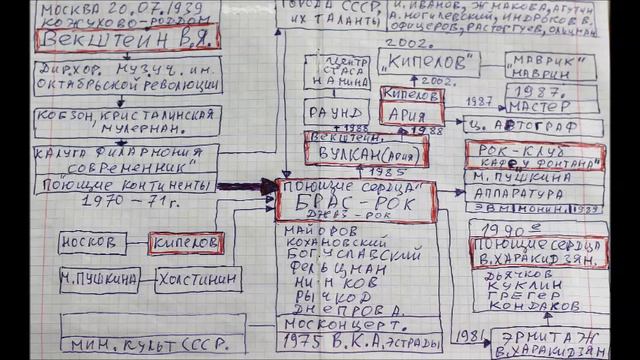 МОСКВА 20.07.1939
КОЖУХОВО-РОДДОМ
ВЕКШТЕЙН В.Я.
ДИР.ХОР. МУЗ.УЧ. ИМ.
ОКТЯБРЬСКОЙ РЕВОЛЮЦИИ
КОБЗОН, КРИСТАЛИНСКАЯ
МУЛЕРМАН.
КАЛУГА ФИЛАРМОНИЯ
"СОВРЕМЕННИК"
ПОЮЩИЕ КОНТИНЕНТЫ
1970-71г.
НОСКОВ
КИПЕЛОВ
М.ПУШКИНА
ХОЛСТИНИН
МИН. КУЛЬТ СССР.
ГОРОДА СССР,
ИХ ТАЛАНТЫ
И. ИВАНОВ, ЖМАКОВА, АГУТИН
А. МОГИЛЕВСКИЙ, В.
ОФИЦЕРОВ, РАСТОРГУЕВ,
ЦЕНТР
СТАСА
НАМИНА
РАУНД
1988
2002.
"КИПЕЛОВ"
2002.
КИПЕЛОВ
АРИЯ
1988
"МАВРИК"
МАВРИН
1987
1987.
МАСТЕР
ВЕКШТЕЙН.
ВУЛКАН (АРИЯ)
1985
Ц. АВТОГРАФ
РОК-КЛУБ
КАФЕ "У ФОНТАНА"
М. ПУШКИНА
АППАРАТУРА
1989
"ПОЮЩИЕ СЕРДЦА"
БРАС-РОК
ДЖАЗ-РОК
МАЙОРОВ
КОХАНОВСКИЙ
БОГУСЛАВСКИЙ
ФЕЛЬЦМАН
РЫЧКОВ
ДНЕПРОВ А.
МОСКОНЦЕРТ.
1975 В.К.А, ЭСТРАДЫ
1990е
ПОЮЩИЕ СЕРДЦА
В. ХАРАКИДЗЯН.
ДЬЯЧКОВ
КУКЛИН
ГРЕГЕР
КОНДАКОВ
1981
ЭРМИТАЖ
В. ХАРАКИДЗЯН